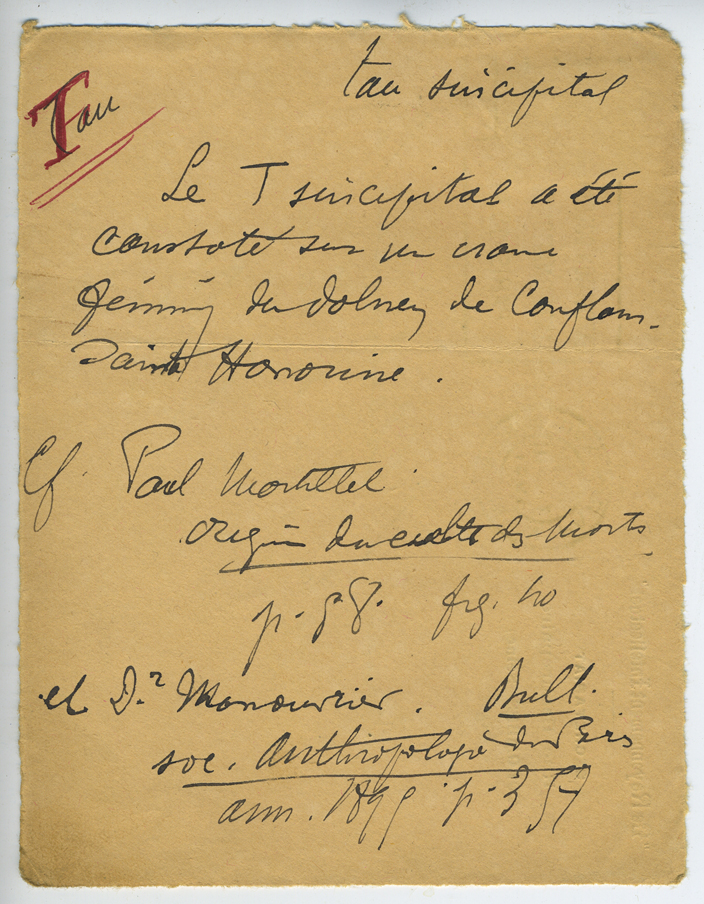 tau sincipital
Tau
Le T sincipital a été
constaté sur un crane
féminin du dolmen de Conflans-
Sainte Honorine.
Cf. Paul Mortillet
Origine du culte des Morts
p. 58. fig. 40
et D.r Manouvrier. Bull.
soc. Anthropologie de Paris
ann. 1895 p. 357